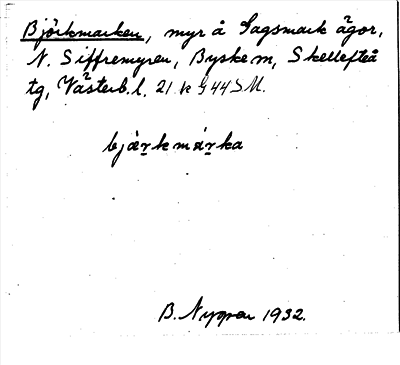 Björkmarken, myr å Sagsmark ägor,
N. Siffremyren, Byske m, Skellefteå
tg, Västerb. l. 21 k G44 S M.
bjär̲kmár̲ka
B. Nygren 1932.